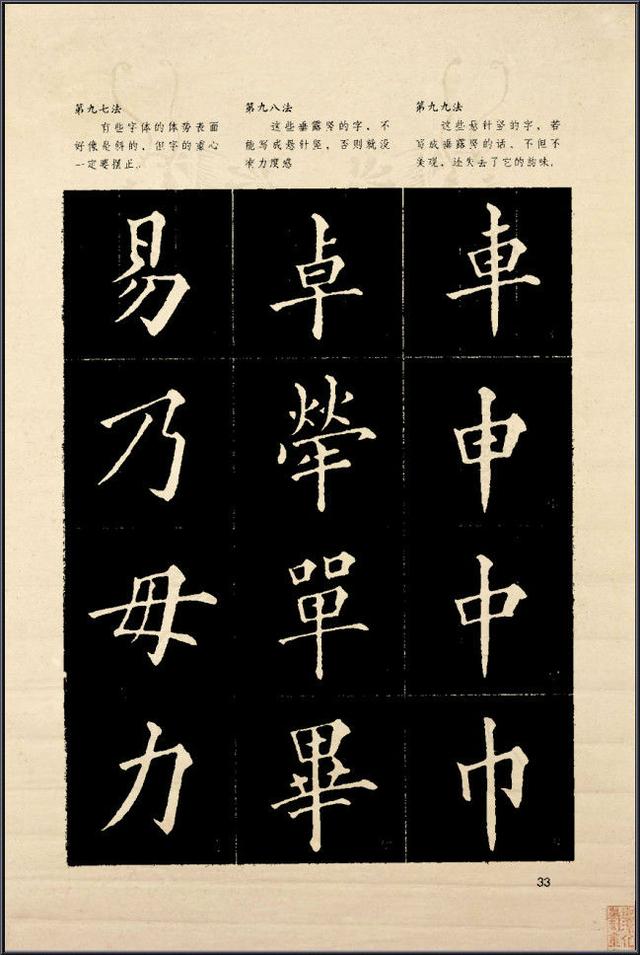 第九七法
有些字体的体势表面
好像是斜的，但字的重心
一定要摆正。
第九八法
这些垂露竖的字，不
能写成悬针竖，否则就没
有力度感
第九九法
这些悬针竖的字，若
写成垂露竖的话，不但不
美观，还失去了它的韵味。
易 卓 車
乃 犖 申
毋 單 中
力 畢 巾
33